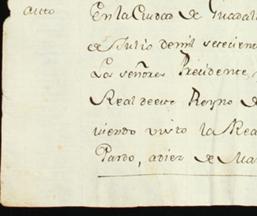 auto
En la Ciudad de Guadal
de Julio de mil setecien
Los señores Precidente,
Real de este Reyno d
viendo visto la Rea
Pardo, a diez de Ma